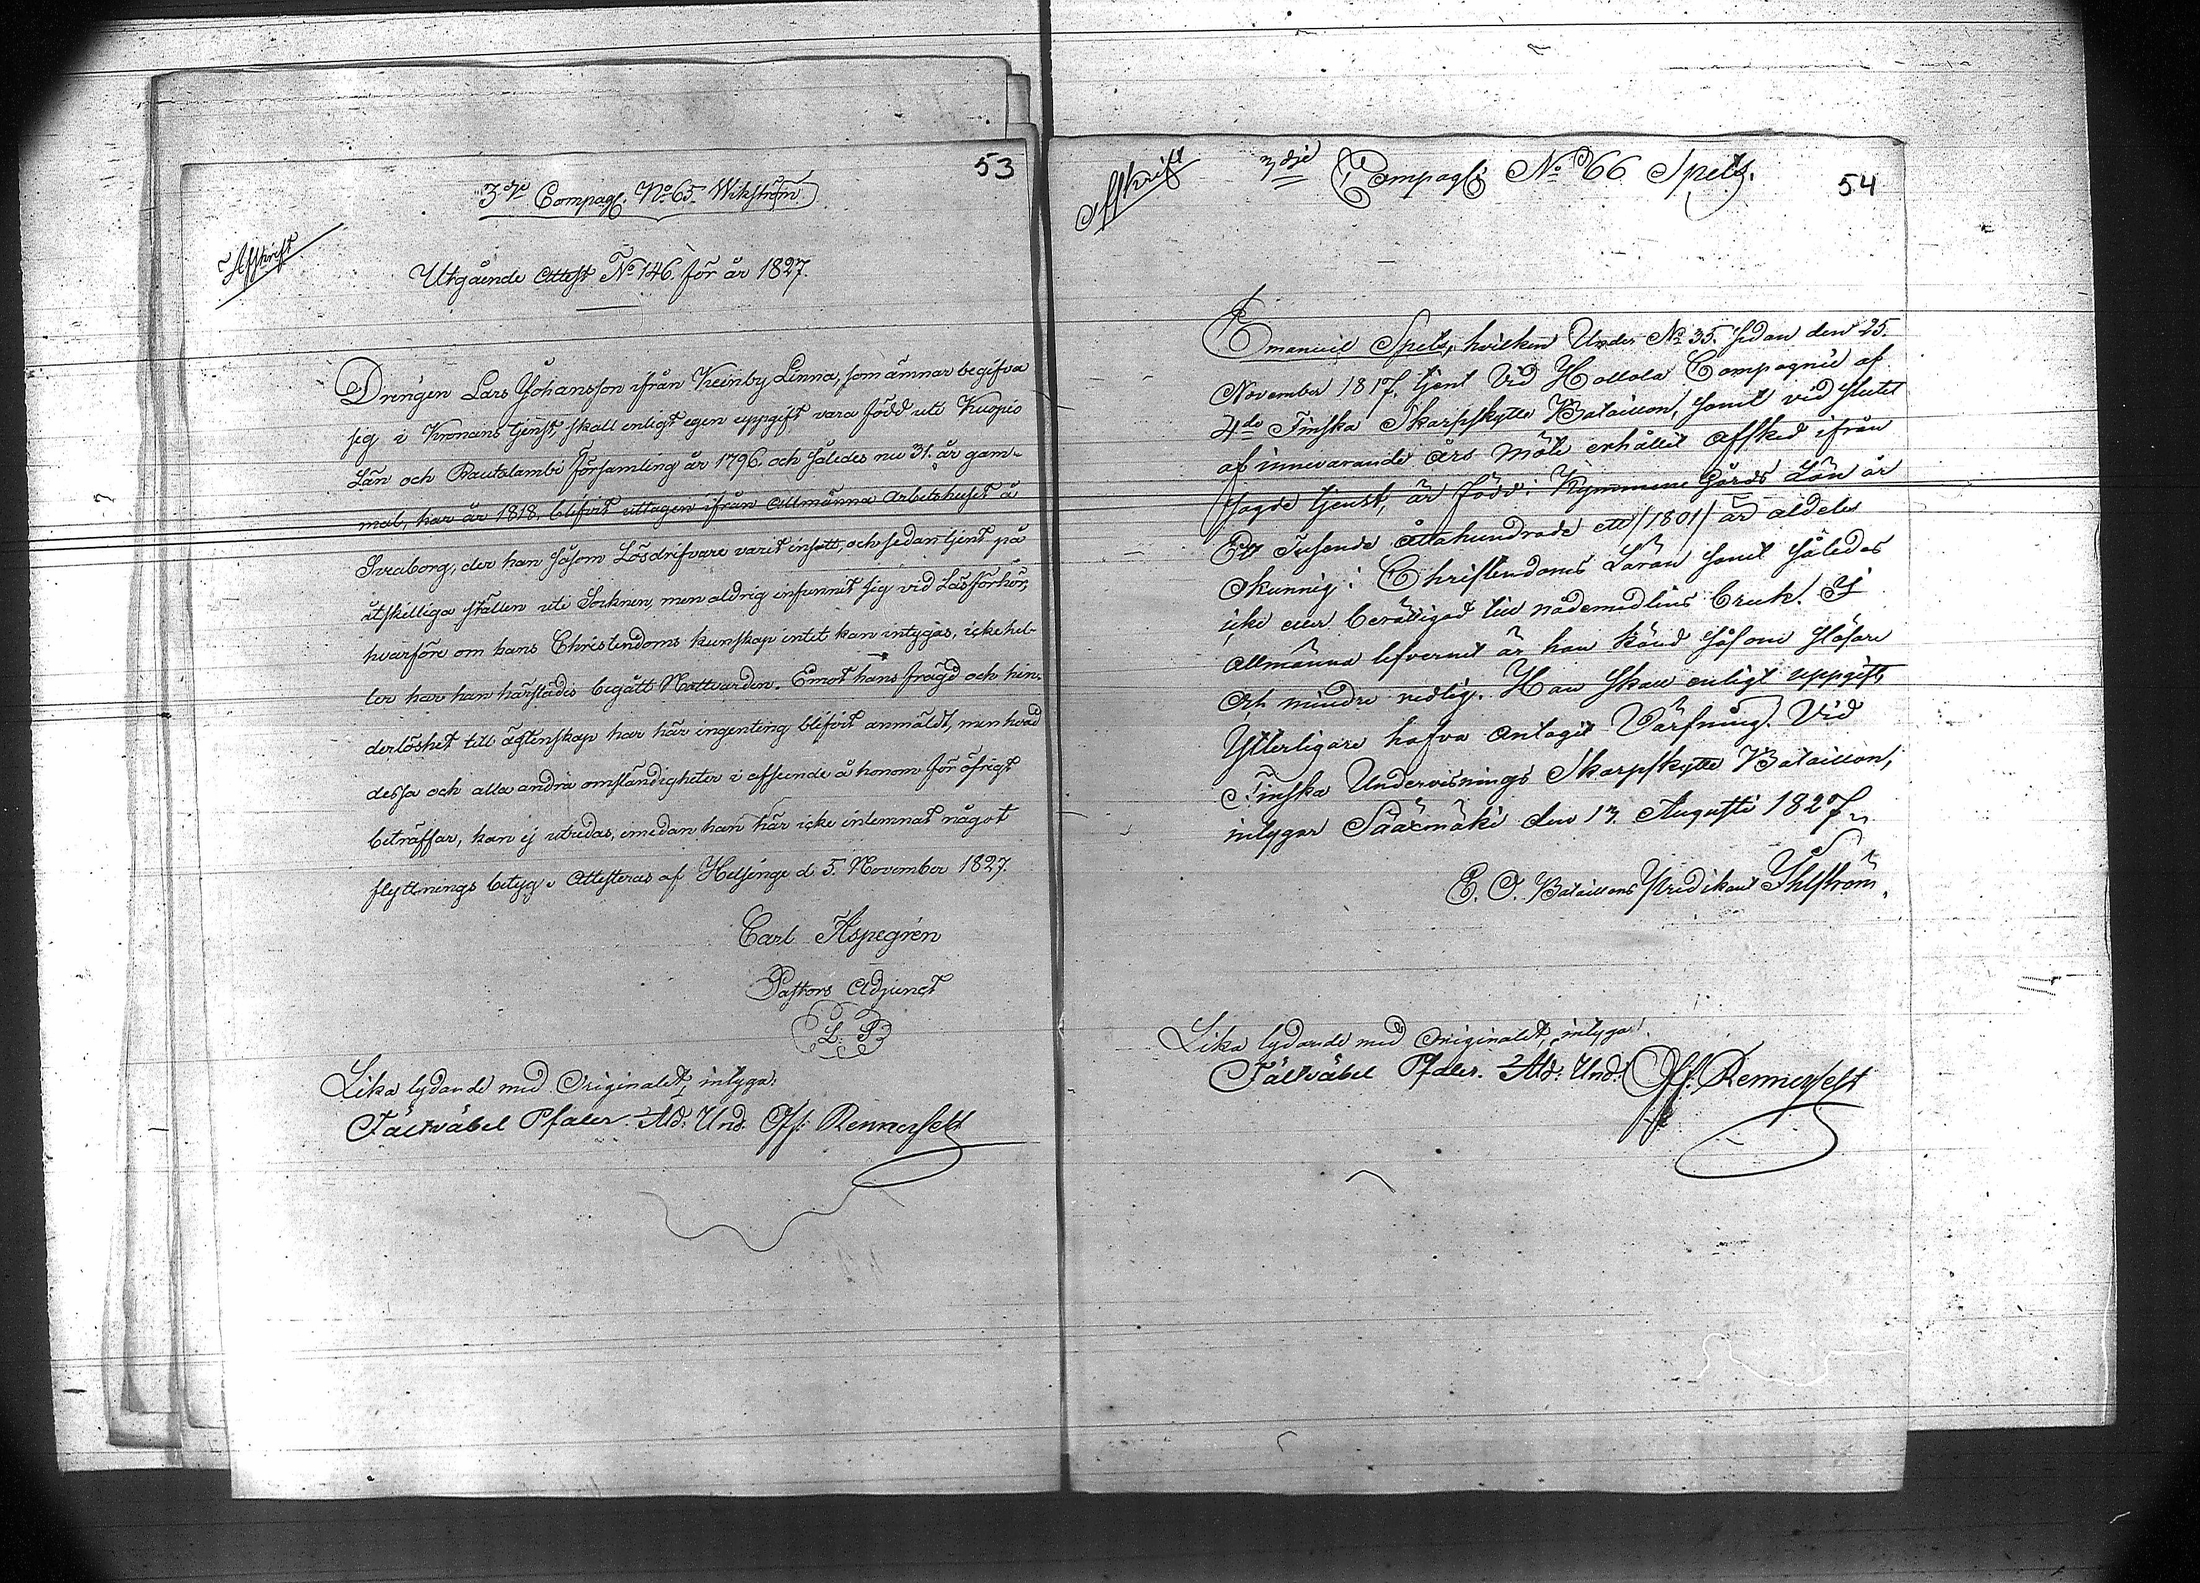 53
3dje Compag. No 65. Wikström
Afskrift
Utgående Attest No 146. för år 1827.
Drängen Lars Johansson ifrån Keinby Linna, som ämnar begifva
sig i Kronans tjenst, skall enligt egen uppgift vara född uti Kuopio
Län och Rautalambi församling år 1796. och således nu 31. år gam-
mal, har år 1818. blifvit uttagen ifrån Allmänna Arbetshuset å
Sveaborg, der han såsom Lösdrifvare varit insatt, och sedan tjent på
åtskilliga ställen uti Socknen, men aldrig infunnit sig vid Läsförhör,
hvarföre om hans Christendoms kunskap intet kan intygas, icke hel-
ler har han härstädes begått Nattvarden. Emot hans frägd och hin-
derlöshet till ägtenskap har här ingenting blifvit anmäldt, men hvad
dessa och alla andra omständigheter i afseende å honom för öfrigt
beträffar, kan ej utredas, emedan han här icke inlemnat något
flyttnings betyg. Attesteras af Helsinge d. 5. November 1827.
Carl Aspegrén
Pastors Adjunct
L. S.
Lika lydande med Originalet, intyga:
Fältväbel Pfaler. Ald: Und. Off: Rennerfelt
Afskrift
3dje Compagi No 66 Spets.
54
Emanuel Spets, hvilken Under No 35. sedan den 25.
November 1817. tjent Vid Hollola Compagnie af
4de Finska Skarpskytte Bataillon, samt vid slutet
af innevarande års Möte erhållit Afsked ifrån
sagde tjenst, är född i Kymmene Gårds Län år
Ett Tusende Åttahundrade ett /1801/ är aldeles
okunnig i Christendoms Läran samt således
icke eller berättigad till nådemedlens bruk. I
Allmänna lefvernet är han känd såsom slösare
och mindre redlig. Han skall enligt uppgift
Ytterligare hafva Antagit Värfning Vid
Finska Undervisnings Skarpskytte Bataillon,
intygar Sääxmäki den 13. Augusti 1827.
E. O. Bataillons Predikant Ihlström.
Lika lydande med Originalet, intyga:
Fältväbel Pfaler. Ald: Und: Off: Rennerfelt